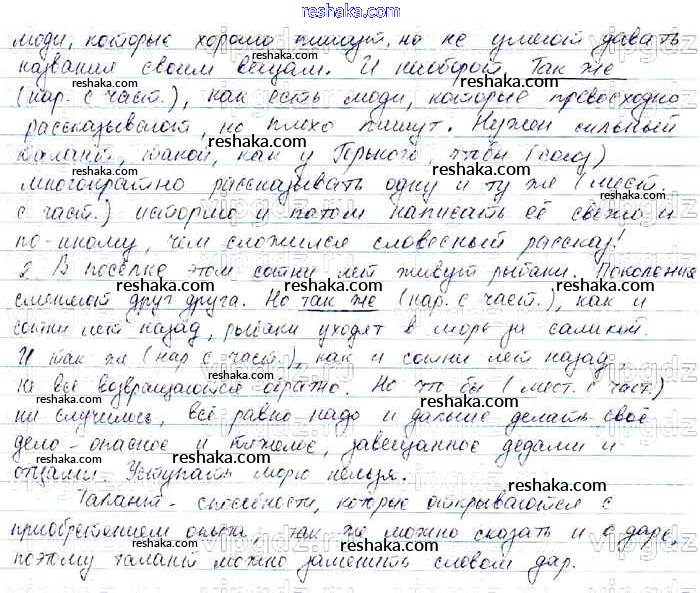 reshaka.com
люди, которые хорошо пишут, но не умеют давать
названия своим вещам. И наоборот. Так же
(нар. с част.), как есть люди, которые превосходно
рассказывают, но плохо пишут. Нужен сильный
талант, такой, как у Горького, чтобы (союз)
многократно рассказывать одну и ту же (мест.
с част.) историю и потом написать её свежо и
по-иному, чем сложился словесный рассказ!
2. В посёлке этом сотни лет живут рыбаки. Поколения
сменяют друг друга. Но так же (нар. с част.), как и
сотни лет назад, рыбаки уходят в море за салакой.
И так же (нар с част.), как и сотни лет назад
Не все возвращаются обратно. Но что бы (мест. с част.)
ни случилось, всё равно надо и дальше делать своё
дело - опасное и тяжёлое, завещанное дедами и
отцами. Уступать морю нельзя.
Талант - способности, которые открываются с
приобретением опыта, так же можно сказать и о даре,
поэтому талант можно заменить словом дар.
reshaka.com
vipgdz